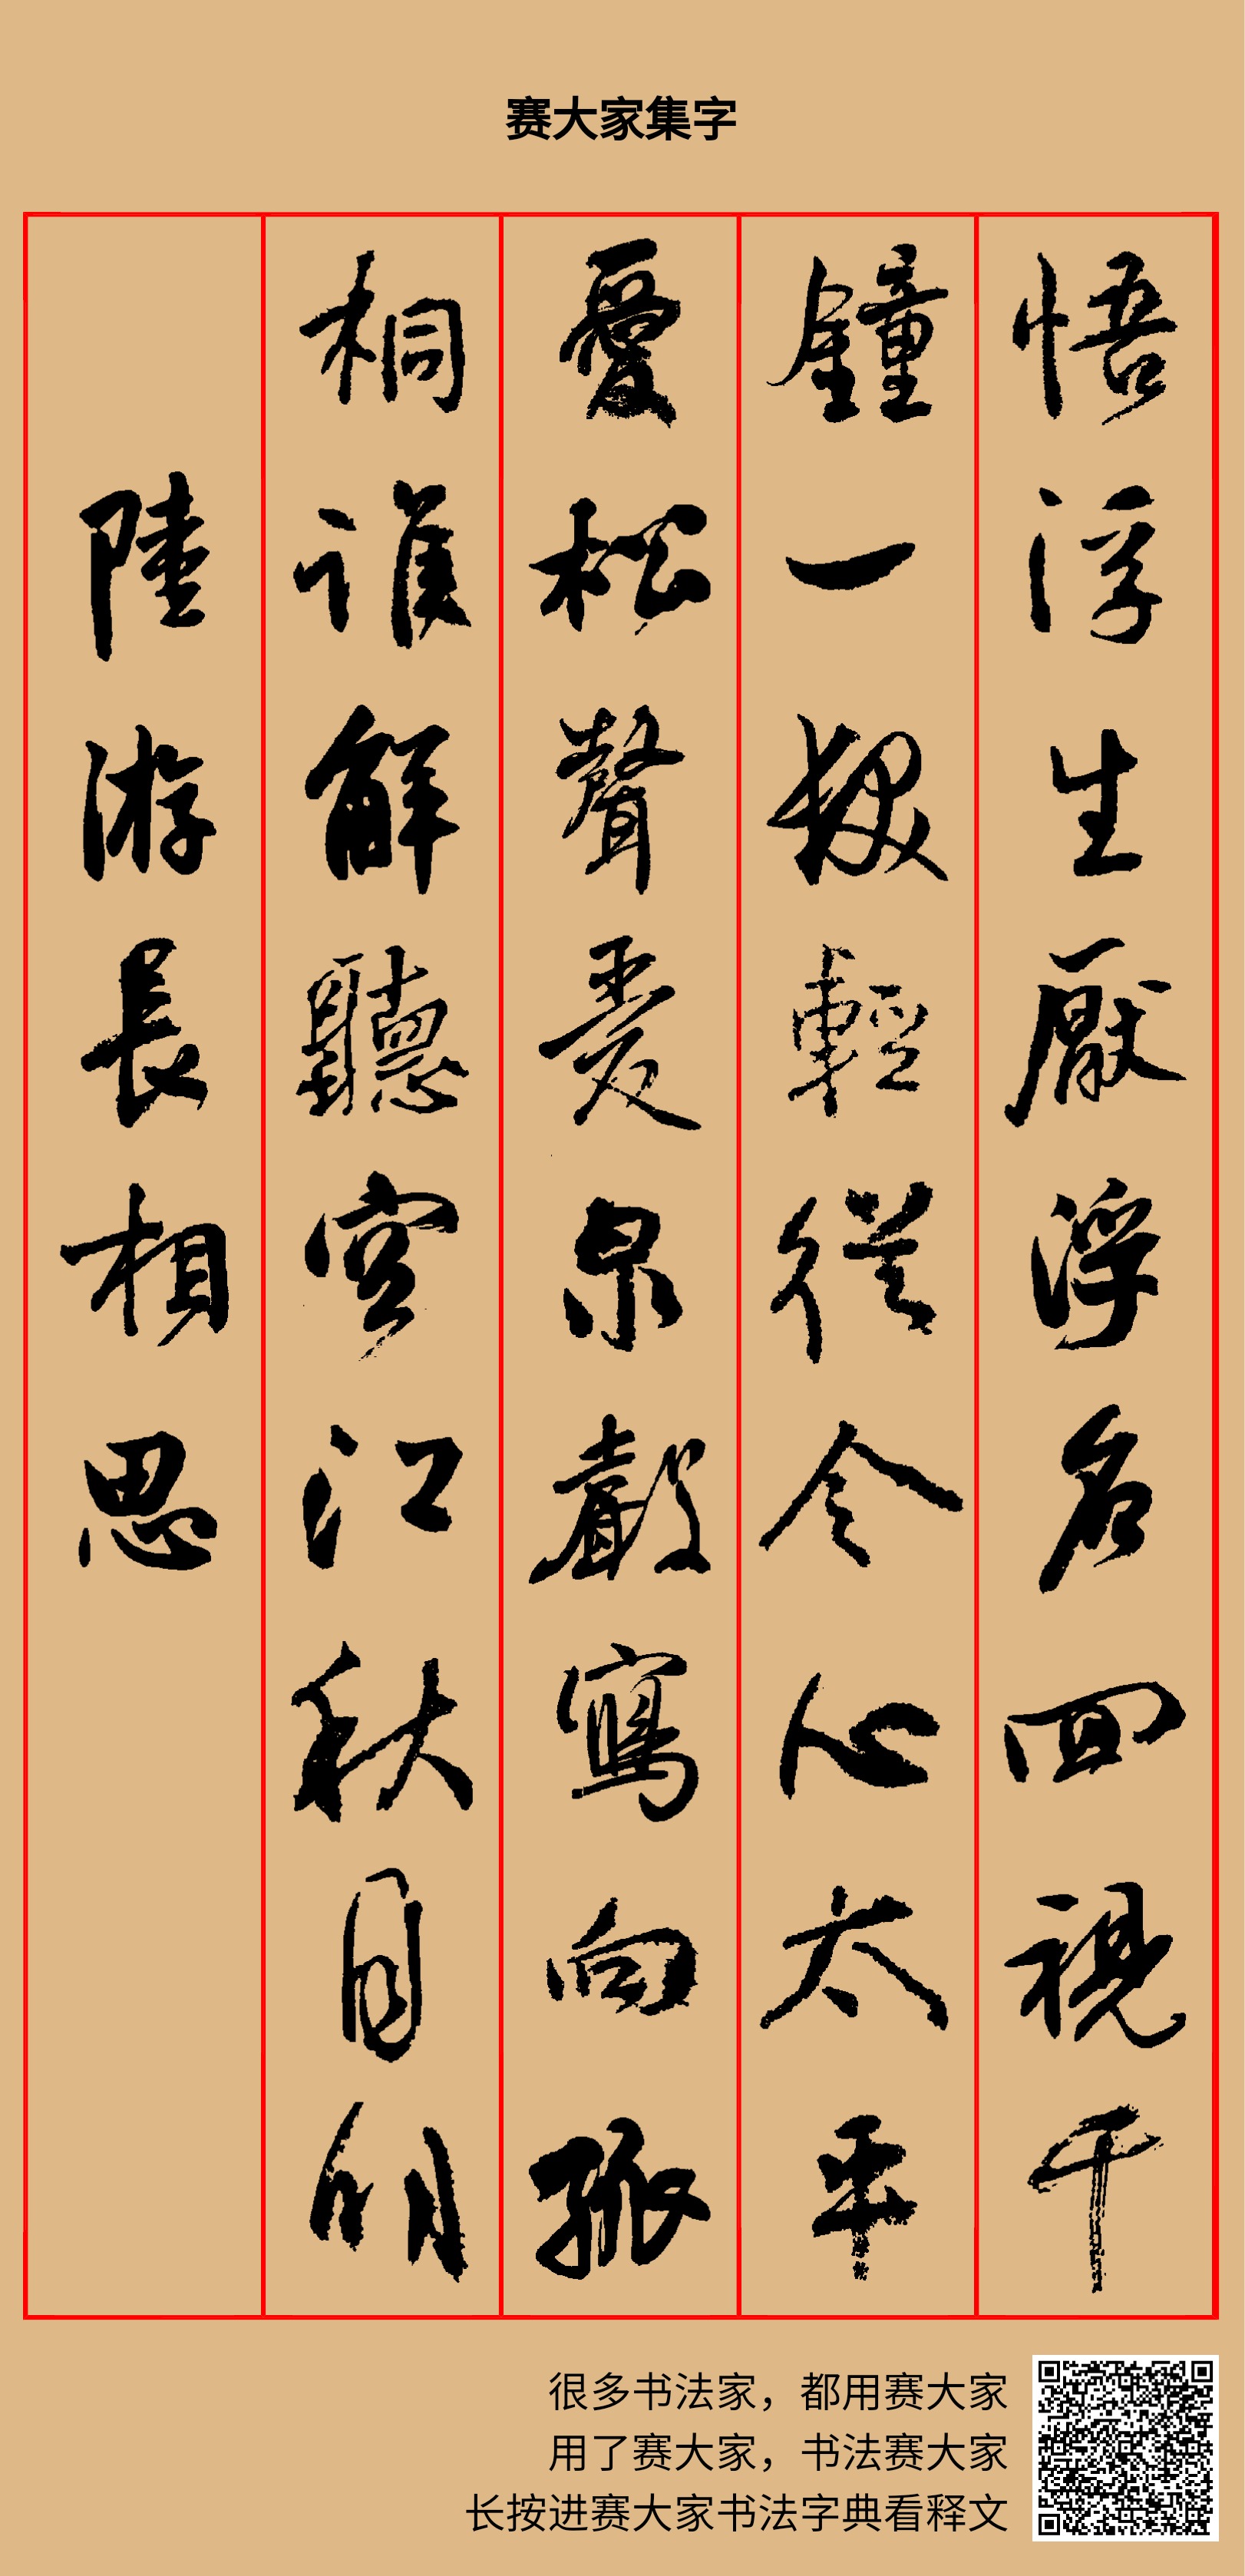 赛大家集字
悟浮生厭浮名回視千
鐘一髮輕從今心太平
愛松聲愛泉聲寫向孤
桐誰解聽空江秋月明
陸游長相思
很多书法家，都用赛大家
用了赛大家，书法赛大家
长按进赛大家书法字典看释文